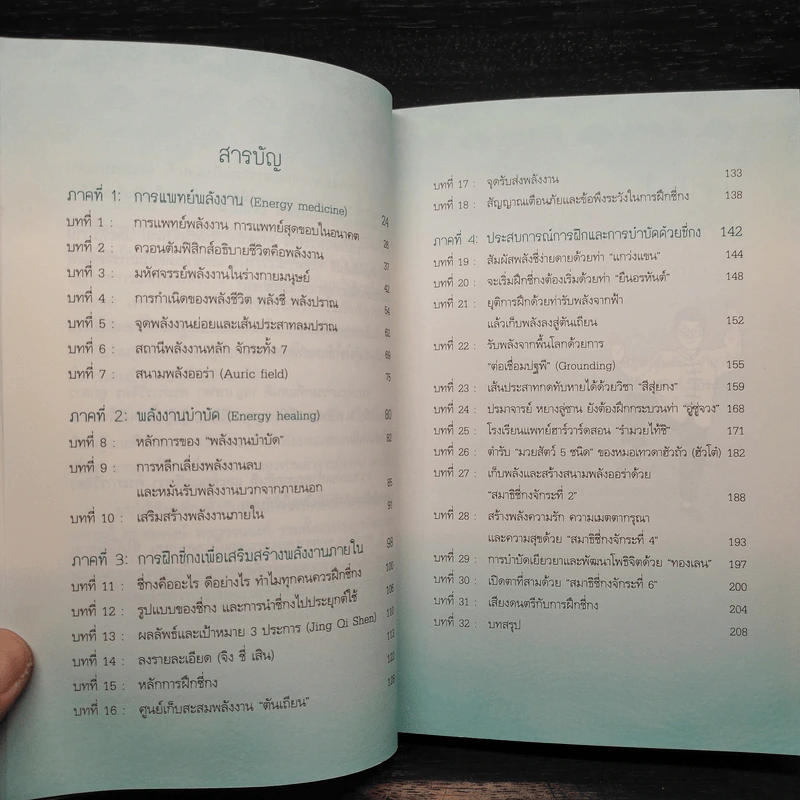 สารบัญ
ภาคที่ 1: การแพทย์พลังงาน (Energy medicine) 24
บทที่ 1 : การแพทย์พลังงาน การแพทย์สุดขอบในอนาคต 26
บทที่ 2 : ควอนตัมฟิสิกส์อธิบายชีวิตคือพลังงาน 37
บทที่ 3 : มหัศจรรย์พลังงานในร่างกายมนุษย์ 42
บทที่ 4 : การกำเนิดของพลังชีวิต พลังชี่ พลังปราณ 54
บทที่ 5 : จุดพลังงานย่อยและเส้นประสาทลมปราณ 62
บทที่ 6 : สถานีพลังงานหลัก จักระทั้ง 7 69
บทที่ 7 : สนามพลังออร่า (Auric field) 75
ภาคที่ 2: พลังงานบำบัด (Energy healing) 80
บทที่ 8 : หลักการของ "พลังงานบำบัด" 82
บทที่ 9 : การหลีกเลี่ยงพลังงานลบ
และหมั่นรับพลังงานบวกจากภายนอก 85
บทที่ 10 : เสริมสร้างพลังงานภายใน 91
ภาคที่ 3: การฝึกชี่กงเพื่อเสริมสร้างพลังงานภายใน 98
บทที่ 11 : ชี่กงคืออะไร ดีอย่างไร ทำไมทุกคนควรฝึกชี่กง 100
บทที่ 12 : รูปแบบของชี่กง และการนำชี่กงไปประยุกต์ใช้ 106
บทที่ 13 : ผลลัพธ์และเป้าหมาย 3 ประการ (Jing Qi Shen) 110
บทที่ 14 : ลงรายละเอียด (จิง ชี่ เสิน) 113
บทที่ 15 : หลักการฝึกชี่กง 122
บทที่ 16 : ศูนย์เก็บสะสมพลังงาน "ตันเถียน" 128
บทที่ 17 : จุดรับส่งพลังงาน 133
บทที่ 18 : สัญญาณเตือนภัยและข้อพึงระวังในการฝึกชี่กง 138
ภาคที่ 4: ประสบการณ์การฝึกและการบำบัดด้วยชี่กง 142
บทที่ 19 : สัมผัสพลังชี่ง่ายดายด้วยท่า "แกว่งแขน" 144
บทที่ 20 : จะเริ่มฝึกชี่กงต้องเริ่มด้วยท่า "ยืนอรหันต์" 148
บทที่ 21 : ยุติการฝึกด้วยท่ารับพลังจากฟ้า
แล้วเก็บพลังลงสู่ตันเถียน 152
บทที่ 22 : รับพลังจากพื้นโลกด้วยการ
"ต่อเชื่อมปฐพี" (Grounding) 155
บทที่ 23 : เส้นประสาทกดทับหายได้ด้วยวิชา "สีสุ่ยกง" 159
บทที่ 24 : ปรมาจารย์ หยางลู่ซาน ยังต้องฝึกกระบวนท่า "อู่ซู่จวง" 168
บทที่ 25 : โรงเรียนแพทย์ฮาร์วาร์ดสอน "รำมวยไท้ชิ" 171
บทที่ 26 : ตำรับ "มวยสัตว์ 5 ชนิด" ของหมอเทวดาฮัวถัว (ฮัวโต๋) 182
บทที่ 27 : เก็บพลังและสร้างสนามพลังออร่าด้วย
"สมาธิชี่กงจักระที่ 2" 188
บทที่ 28 : สร้างพลังความรัก ความเมตตากรุณา
และความสุขด้วย "สมาธิชี่กงจักระที่ 4" 193
บทที่ 29 : การบำบัดเยียวยาและพัฒนาโพธิจิตด้วย "ทองเลน" 197
บทที่ 30 : เปิดตาที่สามด้วย "สมาธิชี่กงจักระที่ 6" 200
บทที่ 31 : เสียงดนตรีกับการฝึกชี่กง 204
บทที่ 32 : บทสรุป 208